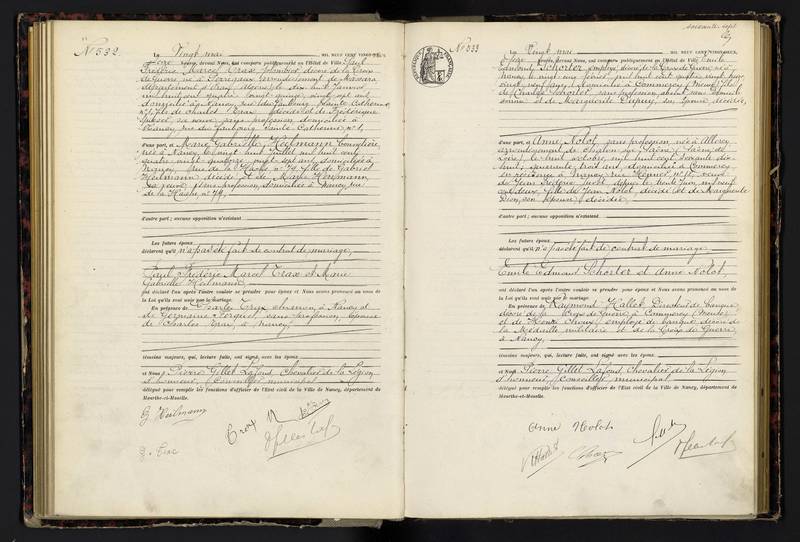 N° 532.
Le Vingt mai, MIL NEUF CENT VINGT-DEUX,
heures, devant Nous, ont comparu publiquement en l'Hôtel de Ville : Paul
Frédéric Marcel Trax décoré de la Croix
de Guerre né à arrondissement de Mascara
département d'Oran, Algérie le dix huit Janvier
mil huit cent quatre vingt quinze, vingt sept ans
domicilié à Nancy, rue du Faubourg Sainte Catherine
n° 1, fils de Charles Trax décédé et de Frédérique
sa veuve, sans profession domiciliée à
Nancy, rue du Faubourg Sainte Catherine n° 1,
d'une part, et Marie Gabrielle Heilmann
née à Nancy le vingt huit Juillet mil huit cent
quatre vingt quatorze vingt sept ans, domiciliée à
Nancy, rue de la Hache n° 79, fille de Gabriel
Heilmann décédé et de Marie Hermann
sa veuve, sans profession, domiciliée à Nancy, rue
de la Hache, n° 79,
d'autre part ; aucune opposition n'existant
Les futurs époux
déclarent qu'il n'a pas été fait de contrat de mariage,
Paul Frédéric Marcel Trax et Marie
Gabrielle Heilmann
ont déclaré l'un après l'autre vouloir se prendre pour époux et Nous avons prononcé au nom de
la Loi qu'ils sont unis par le mariage.
En présence de Charles à Nancy et
de Germaine sans profession, épouse
de Charles Trax, à Nancy,
témoins majeurs, qui, lecture faite, ont signé avec les époux
et Nous Pierre Gillet Lafond, Chevalier de la Légion
d'honneur, Conseiller municipal
délégué pour remplir les fonctions d'officier de l'Etat civil de la Ville de Nancy, département de
Meurthe-et-Moselle.
G Heilmann
soixante-sept
67
N° 533
Le Vingt mai MIL NEUF CENT VINGT-DEUX,
heures, devant Nous, ont comparu publiquement en l'Hôtel de Ville : Emile
Edmond Schorter employé, décoré de la Croix de Guerre, né à
Nancy, le vingt six février mil huit cent quatre vingt treize
vingt neuf ans, domicilié à Commercy (Meuse) fils
de Schorter, sans profession
et de Marguerite Dupuy, son épouse, décédée,
d'une part, et Anne Nolot, sans profession, née à Allerey
arrondissement de Chalon sur Saône (Saône et
Loire) le huit octobre mil huit cent soixante dix
huit, quarante trois ans, domiciliée à Commercy
en résidence à Nancy, rue n° 12, veuve
de Jean depuis le trente Juin mil neuf
cent fille de Jean Nolot, décédé et de Marguerite
Dion, son épouse, décédée,
d'autre part ; aucune opposition n'existant
Les futurs époux
déclarent qu'il n'a pas été fait de contrat de mariage
Emile Edmond Schorter et Anne Nolot,
ont déclaré l'un après l'autre vouloir se prendre pour époux et Nous avons prononcé au nom de
la Loi qu'ils sont unis par le mariage.
En présence de Raymond Hallet Directeur de banque
décoré de la Croix de Guerre à Commercy (Meuse)
et de employé de banque décoré de
la Médaille militaire et de la Croix de Guerre
à Nancy,
témoins majeurs, qui, lecture faite, ont signé avec les époux
et Nous Pierre Gillet Lafond, Chevalier de la Légion
d'honneur, Conseiller municipal
délégué pour remplir les fonctions d'officier de l'Etat civil de la Ville de Nancy, département de
Meurthe-et-Moselle.
Anne Nolot